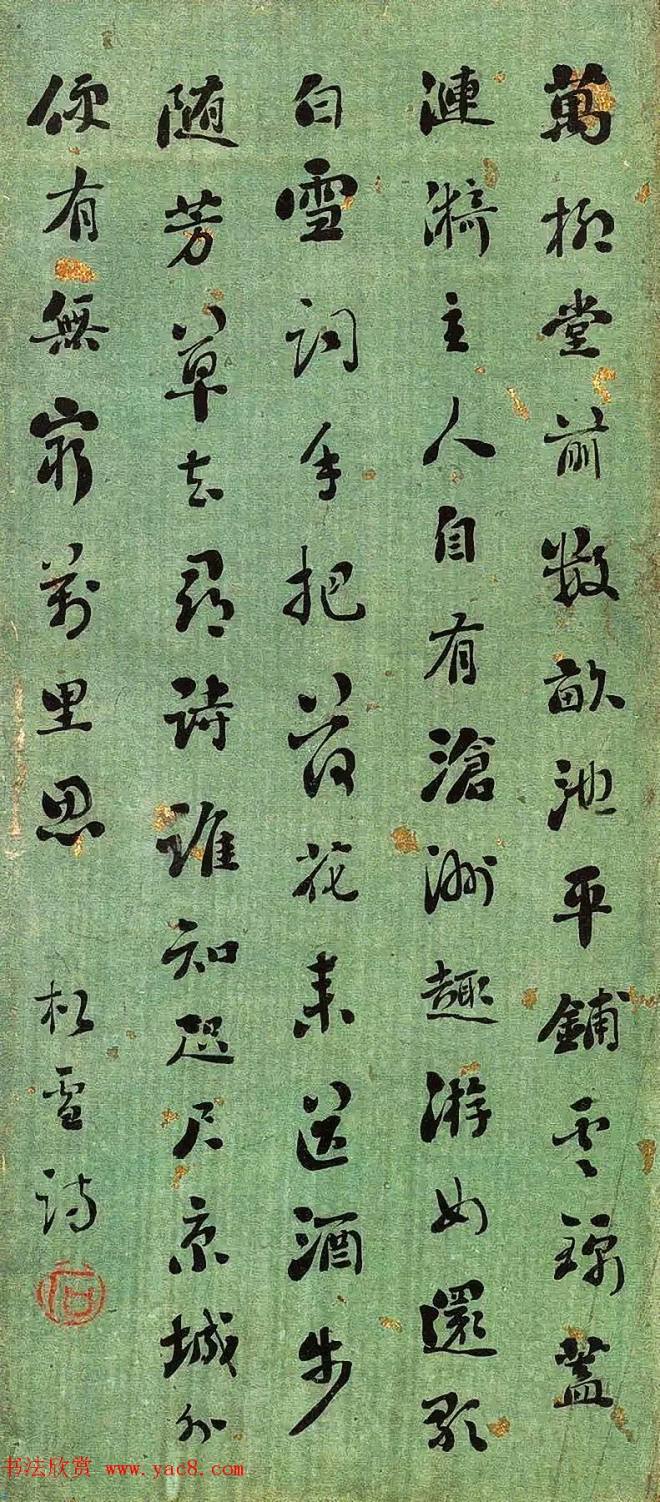 萬柳堂前數畝池平鋪雲錦蓋
漣漪主人自有滄洲趣游女還歌
白雪詞手把荷花來送酒步
隨芳草去尋詩誰知咫尺京城外
便有無窮萬里思 松雪詩
书法欣赏 www.yac8.com